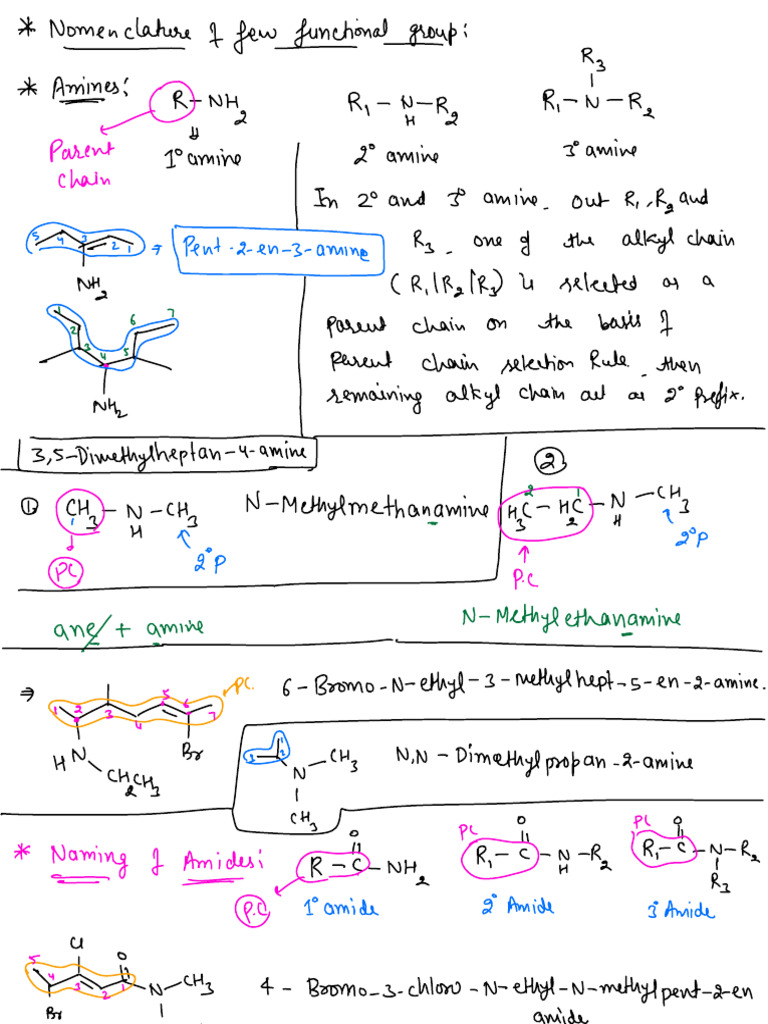 * Nomenclature of few functional group:
* Amines:
R-NH2
1° amine
Parent
chain
R1-N-R2
H
2° amine
R3
R1-N-R2
3° amine
In 2° and 3° amine, out R1, R2 and
R3, one of the alkyl chain
(R1/R2/R3) is selected as a
parent chain on the basis of
Parent chain selection Rule, then
remaining alkyl chain act as 2° prefix.
5 4 3 2 1
NH2
Pent-2-en-3-amine
1 2 3 4 5 6 7
NH2
3,5-Dimethylheptan-4-amine
① CH3-N-CH3
1
H
PC
2°P
N-Methylmethanamine
ane + amine
②
2 1
H3C-H2C-N-CH3
H
P.C
2°P
N-Methylethanamine
⇒ 1 2 3 4 5 6 7
PC.
H N
CH2CH3
Br
6-Bromo-N-ethyl-3-methylhept-5-en-2-amine.
1 2 3
N CH3
CH3
N,N-Dimethylpropan-2-amine
* Naming of Amides:
O
R-C-NH2
P.C
1° amide
PC
O
R1-C-N-R2
H
2° Amide
PC
O
R1-C-N-R2
R3
3° Amide
Cl
O
5 4 3 2 1
Br
N-CH3
4-Bromo-3-chloro-N-ethyl-N-methylpent-2-en
amide